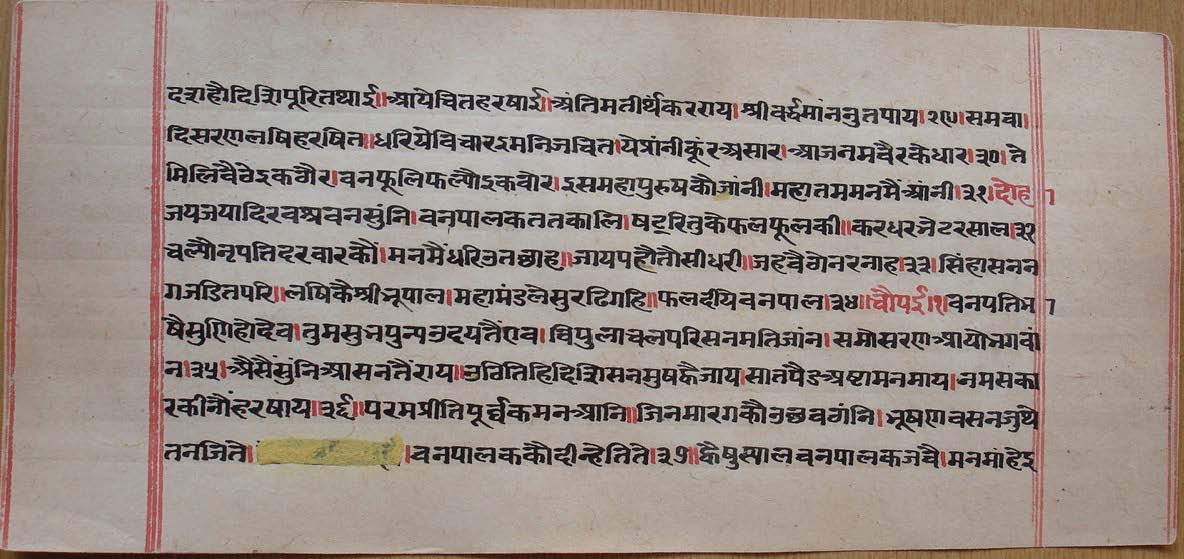 दशहौदिशिपूरितथाई॥आयेचितहरषाई॥अंतिमतीर्थकरराय।श्रीवर्द्धमांननुतपाय।२९।समवा।
दिसरणलषिहरषित॥धरियेविचारइमनिजचित।येप्रांनीकूंरअसार।आजनमवैरकेधार।३०।ते
मिलिबैठेइकठौर।वनफूलिफल्यौइकवोर।इसमहापुरुषकौजांनी।महातममनमैंआंनी।३१।दोह
जयजयादिरवश्रवनसुंनि।वनपालकततकालि।षटरितुकेफलफूलकी॥करधरभेटरसाल।३२
चल्यौनृपतिदरवारकौं।मनमैंधरिउतछाह॥जायपहौतौसीधरी॥जहबैठोनरनाह।३३।सिंहासनन
गजडितपरि॥लषिकैश्रीभूपाल।महामंडलेसुरढिगहि॥फलदीयेवनपाल।३४॥चौपई।१।वनपतिभ
षैसुणिहोदेव।तुमसुभपुन्यउदयतैंएव।विपुलाचलपरिसनमतिजांन।समोसरणआयोभगवां
न।३५।अैसैंसुंनिआसनतैंराय॥उठितिहिदिशिसनमुषह्वैजाय।सातपैंडअष्टागनमाय।नमसका
रकीनौंहरषाय।३६।परमप्रीतिपूर्वकमनआनि॥जिनमारगकौउछवठांनि।भूषणवसनजुथे
तनजिते।वनपालककौदीन्हेतिते।३७।ह्वैषुस्यालवनपालकजबै।मनमांहेइ